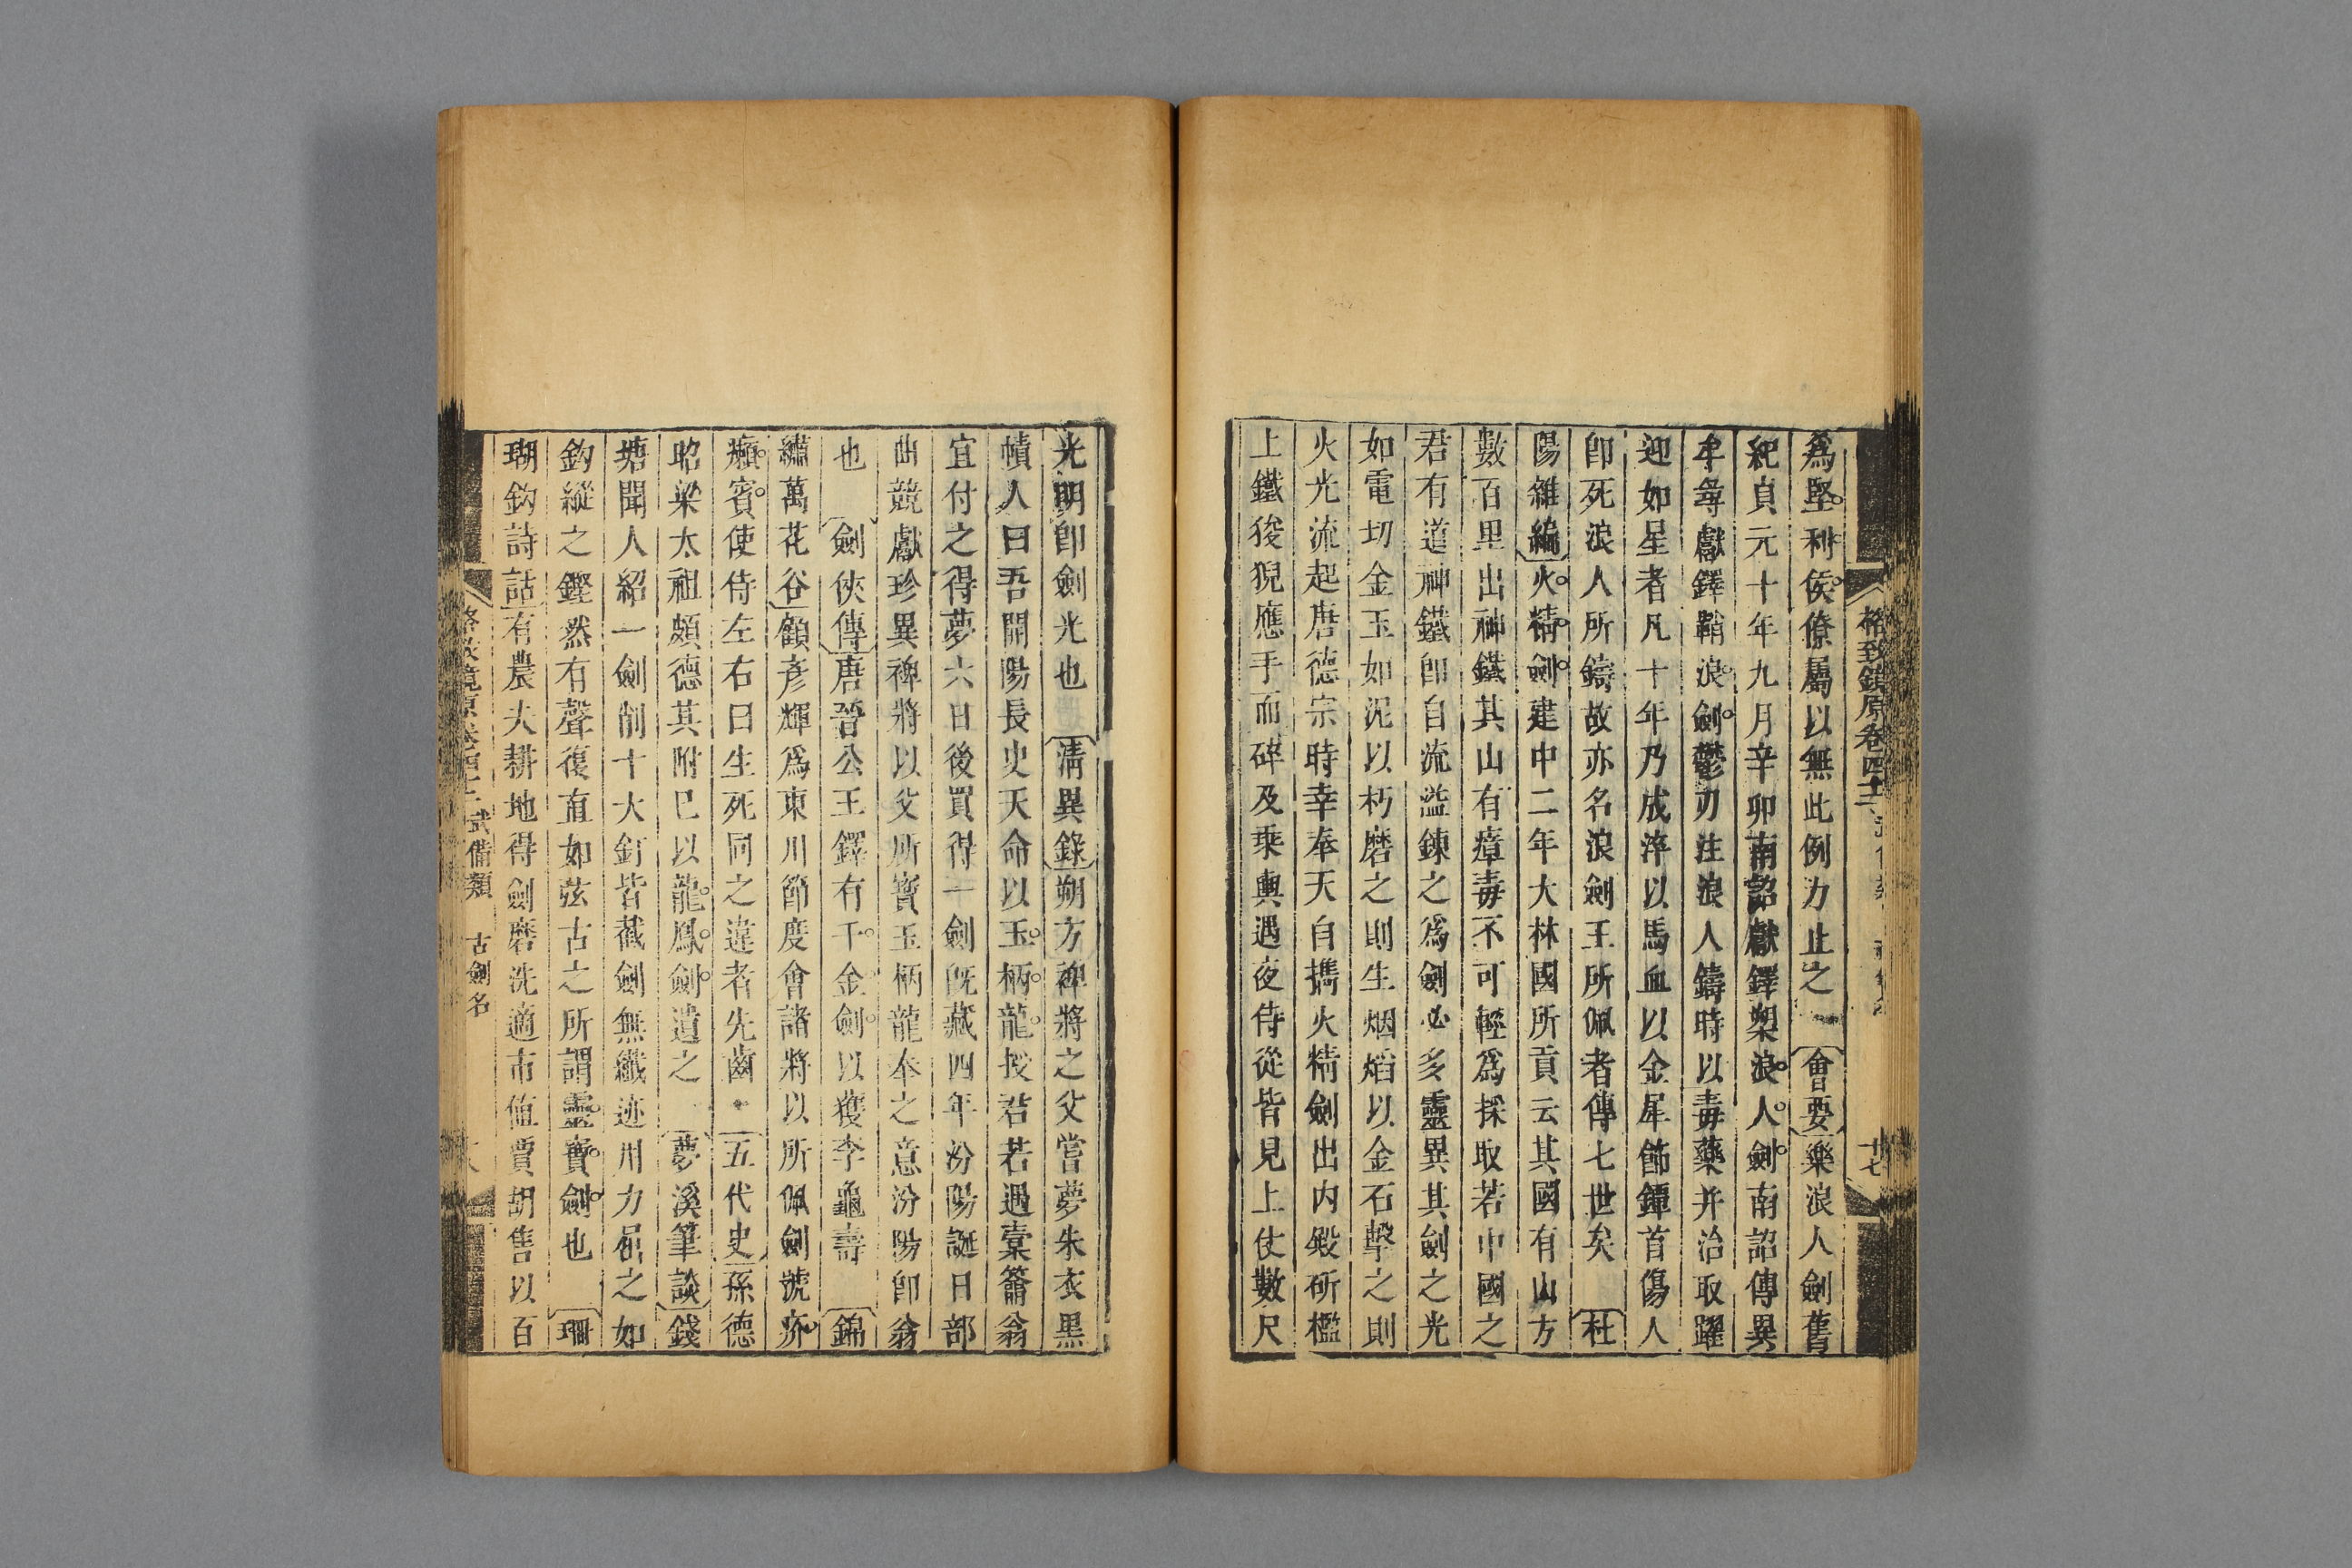 格致鏡原卷四十二
十七
爲堅利侯僚屬以無此例力止之 會要 藥浪人劍舊
紀貞元十年九月辛卯南詔獻鐸槊浪人劍南詔傳異
牟尋獻鐸鞘浪劍鬱刃注浪人鑄時以毒藥并冶取躍
迎如星者凡十年乃成淬以馬血以金犀飾鐔首傷人
卽死浪人所鑄故亦名浪劍王所佩者傳七世矣 杜
陽雜編 火精劍建中二年大林國所貢云其國有山方
數百里出神鐵其山有瘴毒不可輕爲採取若中國之
君有道神鐵卽自流溢鍊之爲劍必多靈異其劍之光
如電切金玉如泥以朽磨之則生烟焰以金石擊之則
火光流起唐德宗時幸奉天自攜火精劍出内殿斫檻
上鐵狻猊應手而碎及乗輿遇夜侍從皆見上仗數尺
光明卽劍光也 清異錄 朔方裨將之父嘗夢朱衣黒
幘人曰吾開陽長史天命以玉柄龍授君若遇棠籥翁
宜付之得夢六日後買得一劍旣藏四年汾陽誕日部
曲競獻珍異裨將以父所寳玉柄龍奉之意汾陽卽翁
也 劍俠傳 唐晉公王鐸有千金劍以獲李龜壽 錦
繡萬花谷 顧彦輝爲東川節度會諸將以所佩劍號疥
癩賓使侍左右曰生死同之違者先齒 五代史 孫德
昭梁太祖頗德其附已以龍鳳劍遺之 夢溪筆談 錢
塘聞人紹一劍削十大釘皆截劍無纖迹用力屈之如
鈎縱之鏗然有聲復直如弦古之所謂靈寶劍也 珊
瑚鈎詩話 有農夫耕地得劍磨洗適市値賈胡售以百
武備類 古劍名